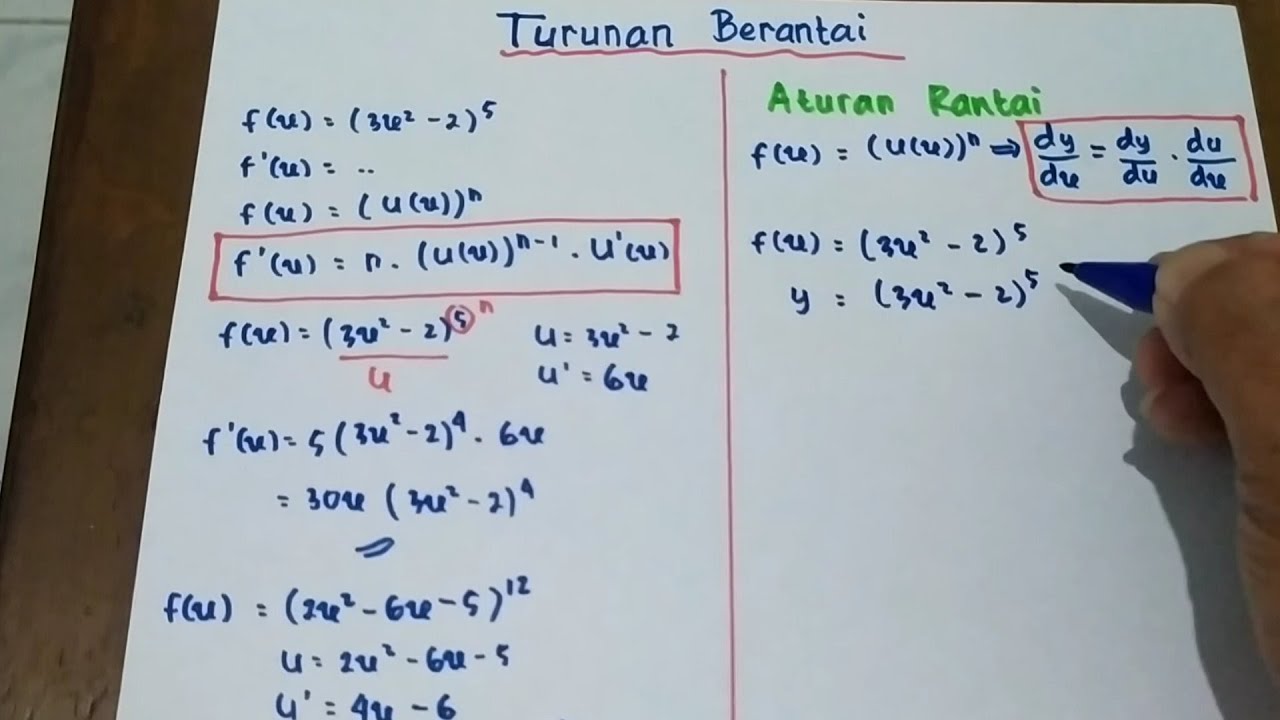 Turunan Berantai
f(x) = (3x² - 2)⁵
f'(x) = ..
f(x) = (U(x))ⁿ
f'(x) = n . (U(x))ⁿ⁻¹ . U'(x)
f(x) = (3x² - 2)⁵ n
U
U = 3x² - 2
U' = 6x
f'(x) = 5(3x² - 2)⁴ . 6x
= 30x (3x² - 2)⁴
f(x) = (2x² - 6x - 5)¹²
U = 2x² - 6x - 5
U' = 4x - 6
Aturan Rantai
f(x) = (U(x))ⁿ ⇒ dy/dx = dy/du . du/dx
f(x) = (3x² - 2)⁵
y = (3x² - 2)⁵